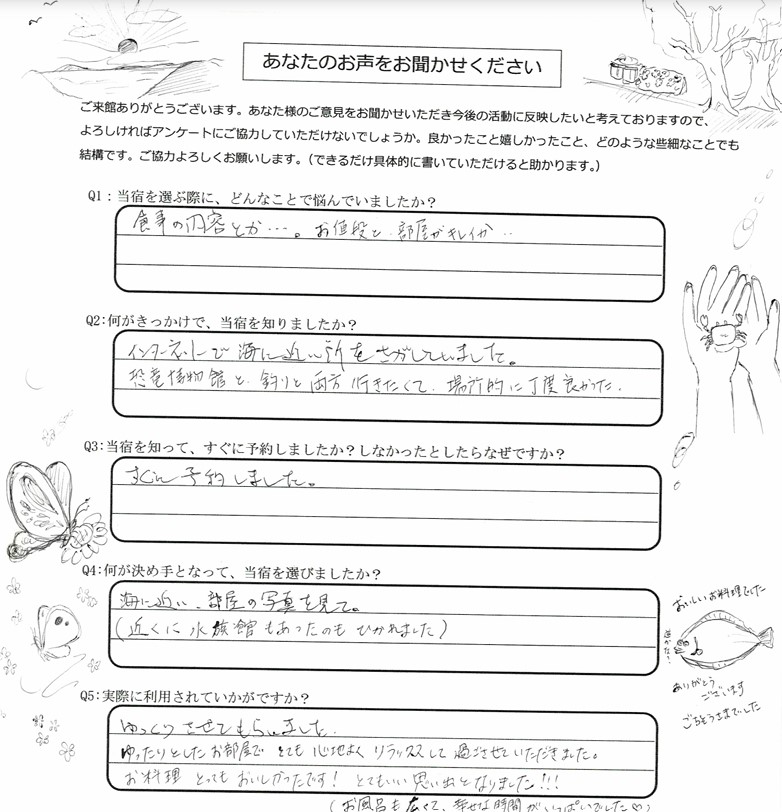 あなたのお声をお聞かせください
ご来館ありがとうございます。あなた様のご意見をお聞かせいただき今後の活動に反映したいと考えておりますので、
よろしければアンケートにご協力していただけないでしょうか。良かったこと嬉しかったこと、どのような些細なことでも
結構です。ご協力よろしくお願いします。(できるだけ具体的に書いていただけると助かります。)
Q1：当宿を選ぶ際に、どんなことで悩んでいましたか？
食事の内容とか…。お値段と、部屋がキレイか‥
Q2:何がきっかけで、当宿を知りましたか？
インターネットで海に近い所をさがしていました。
恐竜博物館と、釣りと両方行きたくて、場所的に丁度良かった.
Q3:当宿を知って、すぐに予約しましたか？しなかったとしたらなぜですか？
すぐに予約しました。
Q4:何が決め手となって、当宿を選びましたか？
海に近い、部屋の写真を見て。
(近くに水族館もあったのもひかれました)
おいしいお料理でした
ありがとう
ございます
ごちそうさまでした
Q5:実際に利用されていかがですか？
ゆっくりさせてもらいました.
ゆったりとしたお部屋でとても心地よくリラックスして過ごさせていただきました。
お料理とってもおいしかったです！とてもいい思い出となりました!!!
(お風呂も広くて、幸せな時間がいっぱいでした♡)